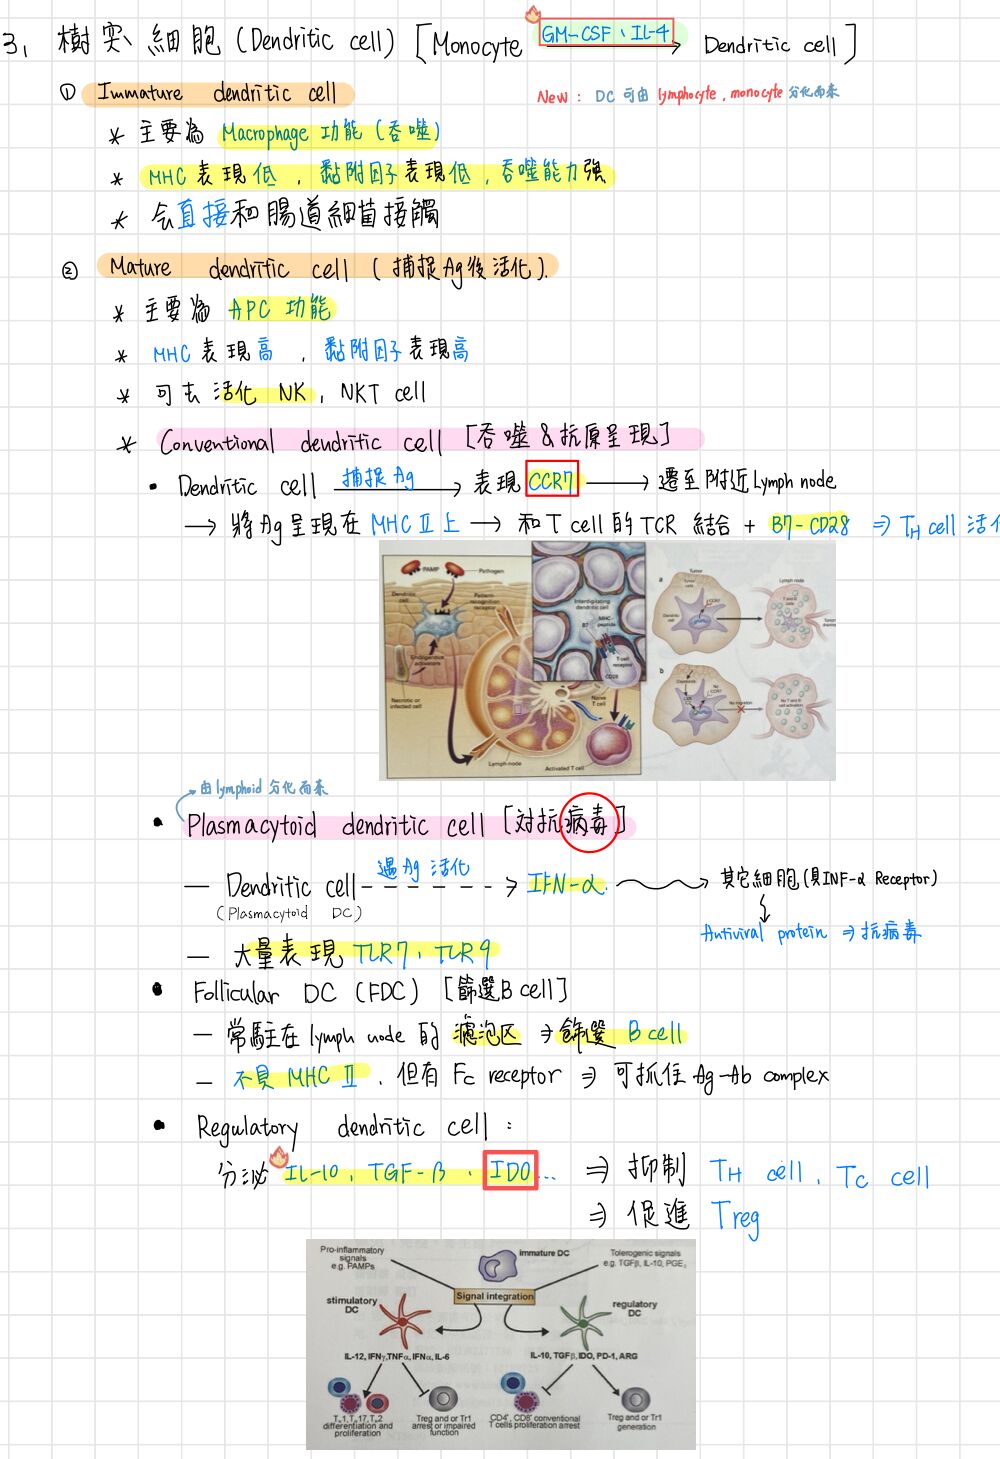 3. 樹突細胞 (Dendritic cell) [Monocyte GM-CSF、IL-4 → Dendritic cell]
① Immature dendritic cell
New : DC 可由 lymphocyte , monocyte 分化而來
* 主要為 Macrophage 功能 (吞噬)
* MHC 表現低 , 黏附因子表現低 , 吞噬能力強
* 会直接和腸道細菌接觸
② Mature dendritic cell ( 捕捉Ag後活化 ).
* 主要為 APC 功能
* MHC 表現高 , 黏附因子表現高
* 可去活化 NK , NKT cell
* Conventional dendritic cell [吞噬 & 抗原呈現]
• Dendritic cell 捕捉 Ag → 表現 CCR7 → 遷至附近 Lymph node
→ 將 Ag 呈現在 MHC II 上 → 和 T cell 的 TCR 結合 + B7-CD28 ⇒ TH cell 活化
PAMP
Pathogen
Dendritic cell
Pattern recognition receptor
Endogenous activators
Necrotic or infected cell
Lymph node
Interdigitating dendritic cell
B7
MHC-peptide
T-cell receptor
CD28
Naive T cell
Activated T cell
a
Tumor
Tumor cells
CCR7
Dendritic cell
Lymph node
T and B cells
b
No CCR7
No migration
No T and B cell activation
由 lymphoid 分化而來
• Plasmacytoid dendritic cell [對抗病毒]
— Dendritic cell 遇 Ag 活化 → IFN-α. → 其它細胞 (具INF-α Receptor)
(Plasmacytoid DC)
Antiviral protein ⇒ 抗病毒
— 大量表現 TLR7、TLR9
• Follicular DC (FDC) [篩選 B cell]
— 常駐在 lymph node 的 濾泡区 ⇒ 篩選 B cell
— 不具 MHC II , 但有 Fc receptor ⇒ 可抓住 Ag-Ab complex
• Regulatory dendritic cell :
分泌 IL-10 , TGF-β 、 IDO ... ⇒ 抑制 TH cell , Tc cell
⇒ 促進 Treg
Pro-inflammatory signals e.g. PAMPs
immature DC
Tolerogenic signals e.g. TGFβ, IL-10, PGE₂
Signal integration
stimulatory DC
regulatory DC
IL-12, IFNγ,TNFα, IFNα, IL-6
IL-10, TGFβ, IDO, PD-1, ARG
TH1,TH17,TH2 differentiation and proliferation
Treg and or Tr1 arrest or impaired function
CD4⁺, CD8⁺ conventional T cells proliferation arrest
Treg and or Tr1 generation